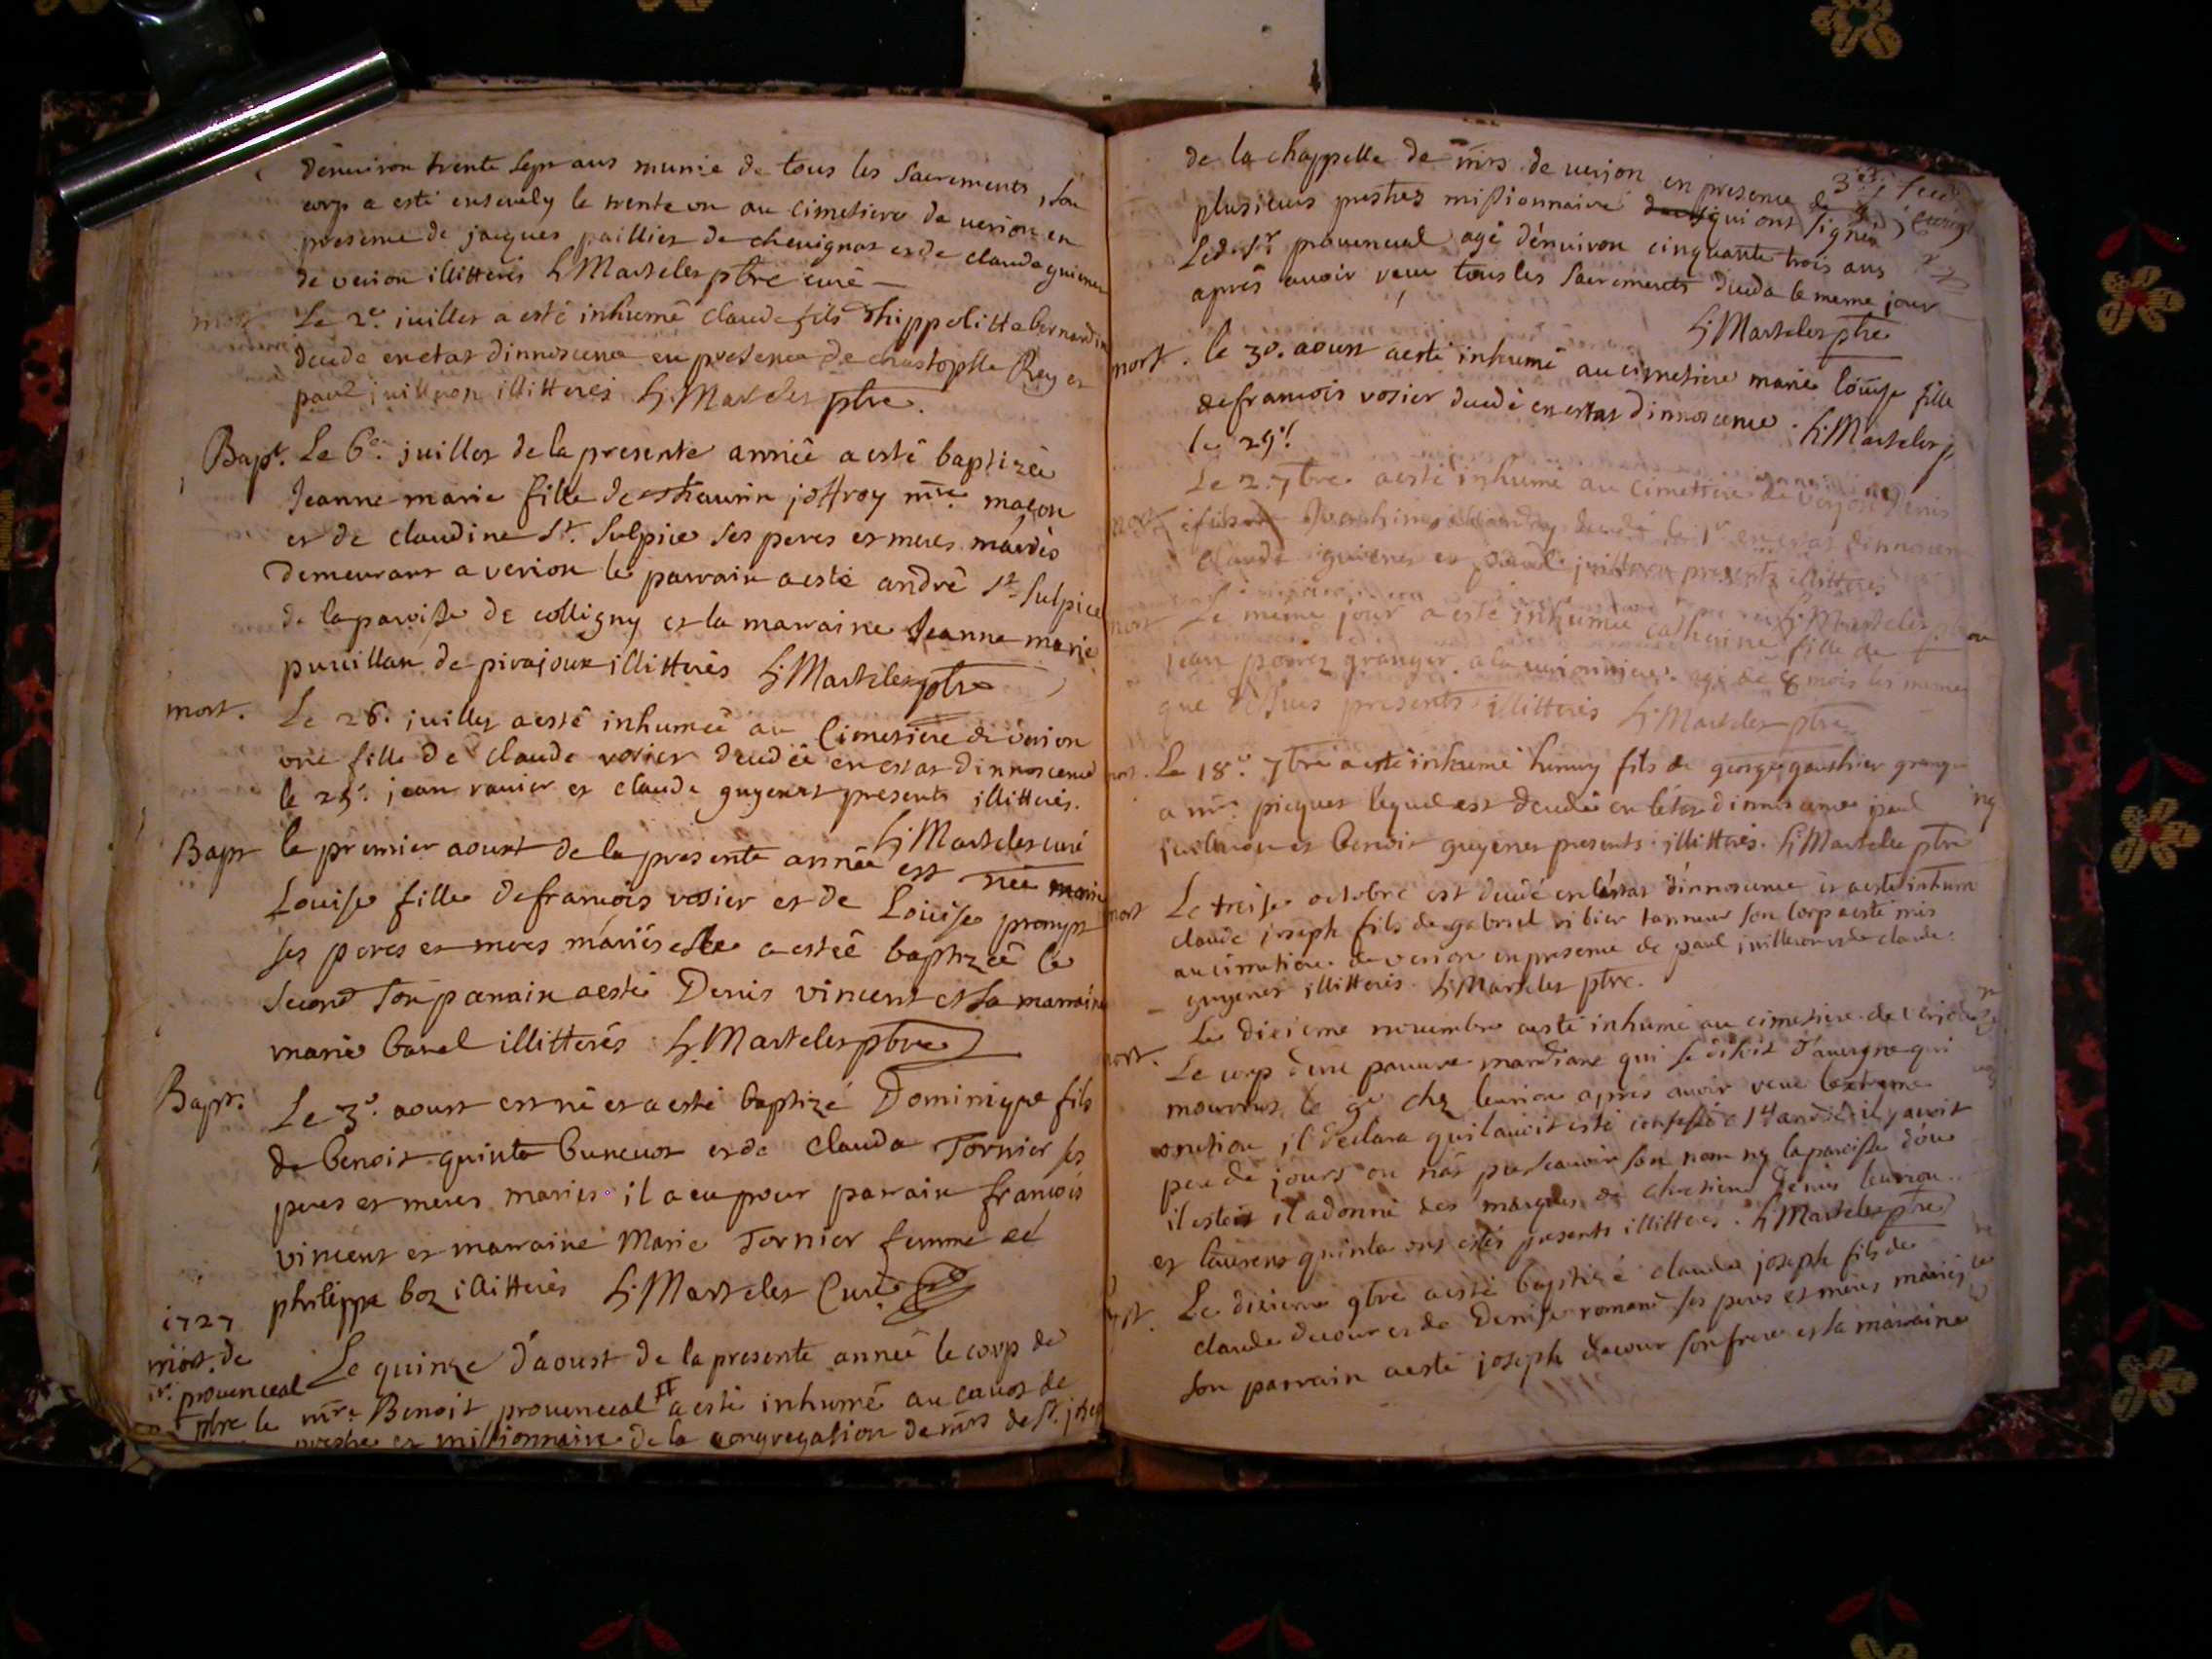 d'enuiron trente sept ans munie de tous les sacrements, son
corp a esté enseuely le trente un au cimetiere de verion en
presence de jacques paillier de cheuignat et de claude guienet
de verion illitterés h: Martelet ptre curé
mort. Le 2e. juillet a esté inhumé claude fils d'hippolitte bernardin
decede en etat dinnoscence en presence de christophle Rey et
paul juilleron illitteres h: Martelet ptre.
Bapt. Le 6e. juillet de la presente année a esté baptizée
Jeanne marie fille de joffroy mre. maçon
et de claudine St. Sulpice ses peres et meres mariés
demeurant a verion le parrain a esté andré St. Sulpice
de la paroisse de colligny et la marraine Jeanne marie
puuillan de pirajoux illitterés h: Martelet ptre
mort. Le 26. juillet a esté inhumée au Cimetiere de verion
une fille de claude vosier decedée en estat dinnoscence
le 25e. jean ravier et claude guyenet presents illitterés.
h: Martelet curé
Bapt le premier aoust de la presente année est née marie
Louise fille de francois vosier et de Louise prompt
ses peres et meres mariés elle a estée baptizée le
second son parrain a esté Denis vincent et sa marraine
marie banel illitterés h: Martelet ptre
Bapt. Le 3e. aoust est né et a esté baptizé Dominique fils
de benoit quinta et de clauda Tornier ses
peres et meres mariés il a eu pour parain francois
vincent et marraine Marie Tornier femme de
philippe boz illitterés h: Martelet Curé
1727
mort. de
sr. prouenceal
ptre le
Le quinze d'aoust de la presente année le corp de
mre. Benoit prouenceal a esté inhumé au caueot de
prestre et missionnaire de la congregation de mrs de St. joseph
de la chappelle de mrs de verion en presence de
plusieurs prestres missionnaire qui ont signé
Led. Sr. prouenceal agé d'enuiron cinquante trois ans
aprés auoir receu tous les sacrements deceda le meme jour
h: Martelet ptre
mort. le 30. aoust a esté inhumé au cimetiere marie louise fille
de francois vosier decedé en estat d'innoscence. h: Martelet p
le 29e.
Le 2. 7bre a esté inhumé au cimettiere de verion Denis
decedé le 1r en estat dinnoscen
claude guienet et paul juilleron presents illitteres
h: Martelet
mort Le meme jour a esté inhumée catherine fille de
jean poirez granger agé de 8 mois les meme
que dessus presents illitterés h: Martelet ptre
Le 18e. 7bre a esté inhumé humy fils de george gauthier grange
a mr. picquet lequel est decedé en l'etat dinnoscence paul
juilleron et benoit guyenet presents illitterés. h: Martelet ptre
mort Le treise octobre est decedé en l'estat d'innoscence et a esté inhumé
claude joseph fils de gabriel vibier tanneur son corp a esté mis
au cimetiere de verion en presence de paul juilleron et de claude
guyenet illitterés. h: Martelet ptre.
mort. Le dixieme nouembre a esté inhumé au cimetiere de verion
Le corp d'un pauure mandiant qui se disoit d'auuergne qui
mourrut le 9e chez leurion aprés auoir receu lextreme
onction il declara quil auoit esté confessé a St andré il y auoit
peu de jours on n'as pu scauoir son nom ny la paroisse d'ou
il estoit il a donné des marques de chretien Denis leurion
et laurens quinta ont estés presents illitteres. h: Martelet ptre
Le dixieme 9bre a esté baptizé claude joseph fils de
claude decour et de Denise romand ses peres et meres mariés
son parrain a esté joseph decour son frere et la marraine